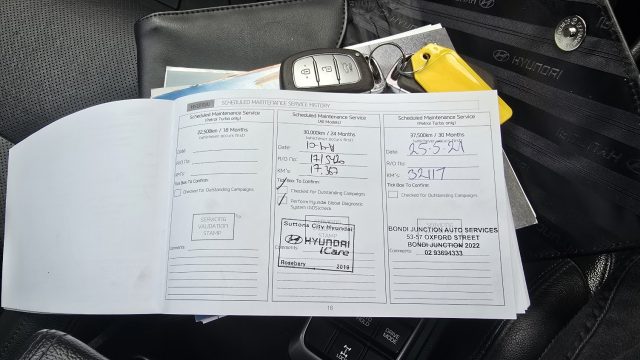 HYUNDAI SCHEDULED MAINTENANCE SERVICE HISTORY
Scheduled Maintenance Service
(Petrol Turbo only)
22,500km / 18 Months
(whichever occurs first)
Date:
R/O No:
KM's:
Tick Box To Confirm:
Checked for Outstanding Campaigns
SERVICING
VALIDATION
STAMP
Comments:
Scheduled Maintenance Service
(All Models)
30,000km / 24 Months
(whichever occurs first)
Date:
R/O No:
KM's: 17,367
Tick Box To Confirm:
Checked for Outstanding Campaigns
Perform Hyundai Global Diagnostic
System (GDS) check
Suttons City Hyundai
HYUNDAI
iCare
Rosebery 2018
Comments:
Scheduled Maintenance Service
(Petrol Turbo only)
37,500km / 30 Months
(whichever occurs first)
Date: 25-5-21
R/O No:
KM's: 32117
Tick Box To Confirm:
Checked for Outstanding Campaigns
BONDI JUNCTION AUTO SERVICES
53-57 OXFORD STREET
BONDI JUNCTION 2022
02 93694333
Comments:
16
HYUNDAI
HOLD
DRIVE
MODE